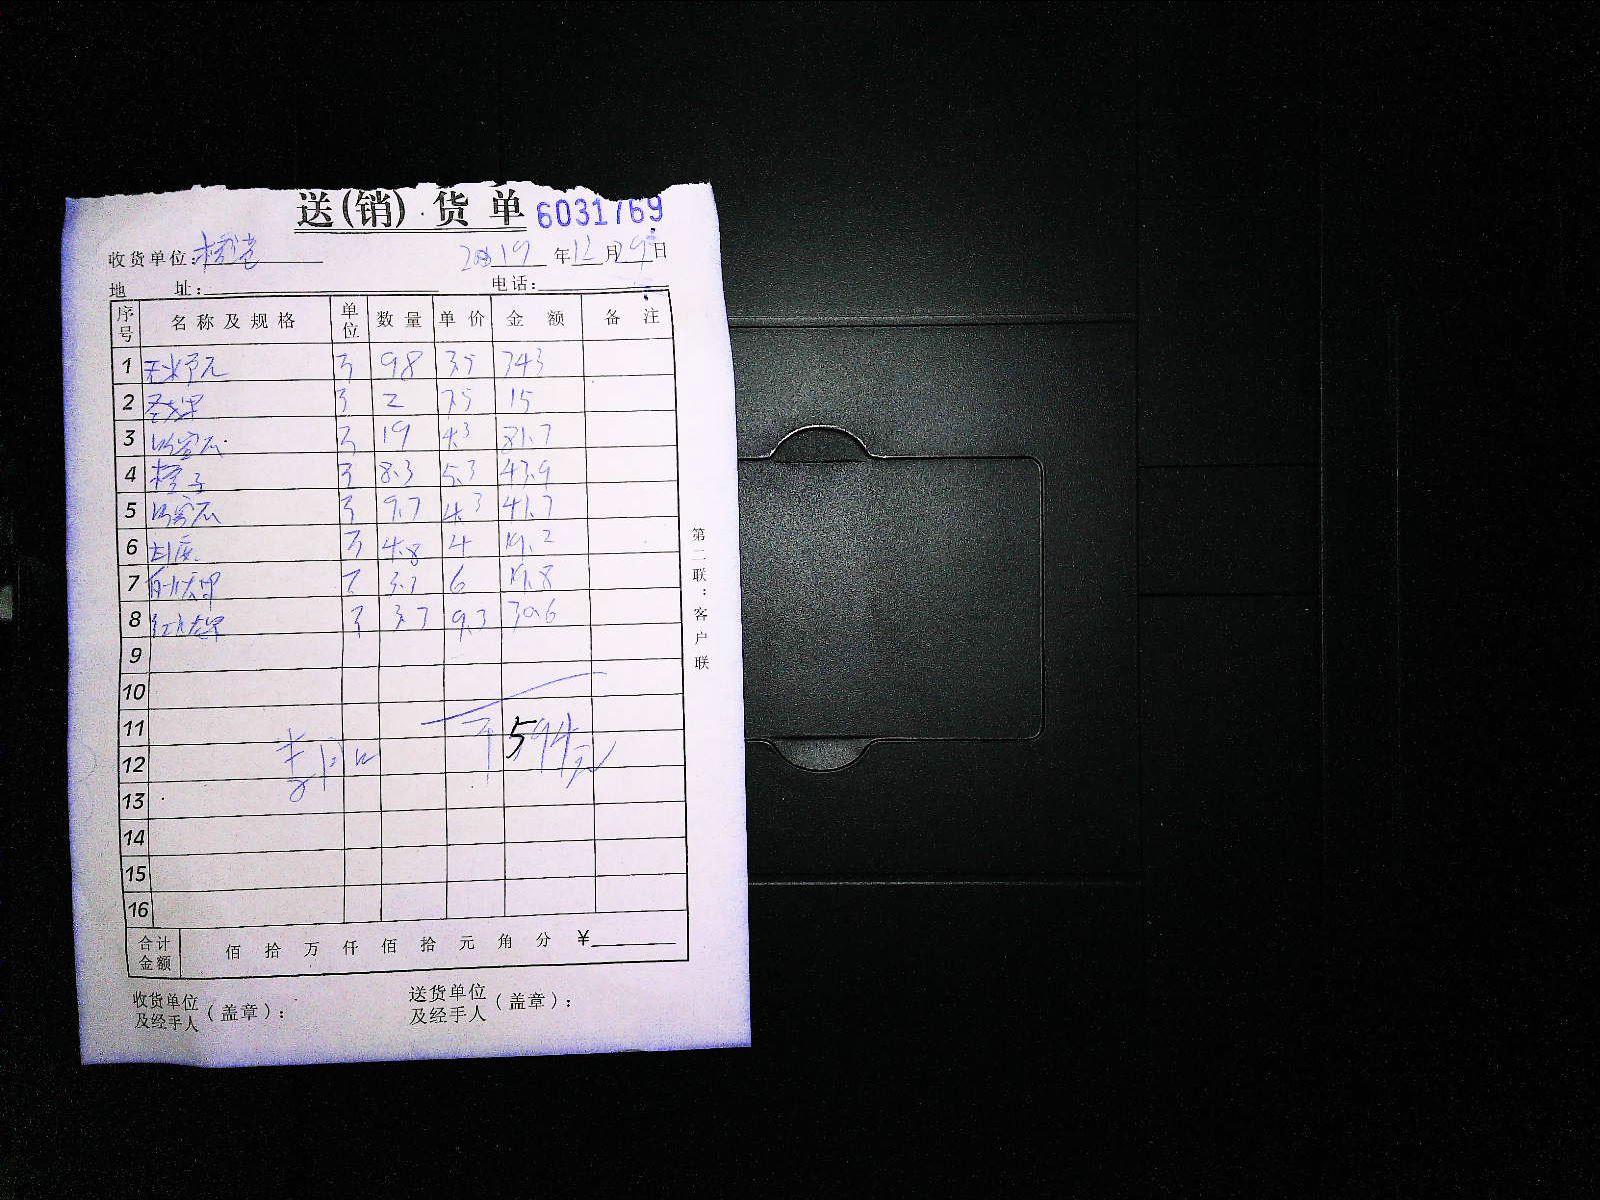 送(销)货单 6031769
收货单位: 2019年12月29日
地 址: 电话:
序号 名称及规格 单位 数量 单价 金额 备注
1 斤 98 3.5 343
2 圣女果 斤 2 7.5 15
3 哈密瓜 斤 19 4.3 81.7
4 橙子 斤 8.3 5.3 43.9
5 哈密瓜 斤 9.7 4.3 41.7
6 斤 4.8 4 19.2
7 斤 3.3 6 19.8
8 斤 3.3 9.3 30.6
9
10
11
12 594元
13
14
15
16
合计金额 佰 拾 万 仟 佰 拾 元 角 分 ¥
收货单位及经手人(盖章): 送货单位及经手人(盖章):
第二联:客户联